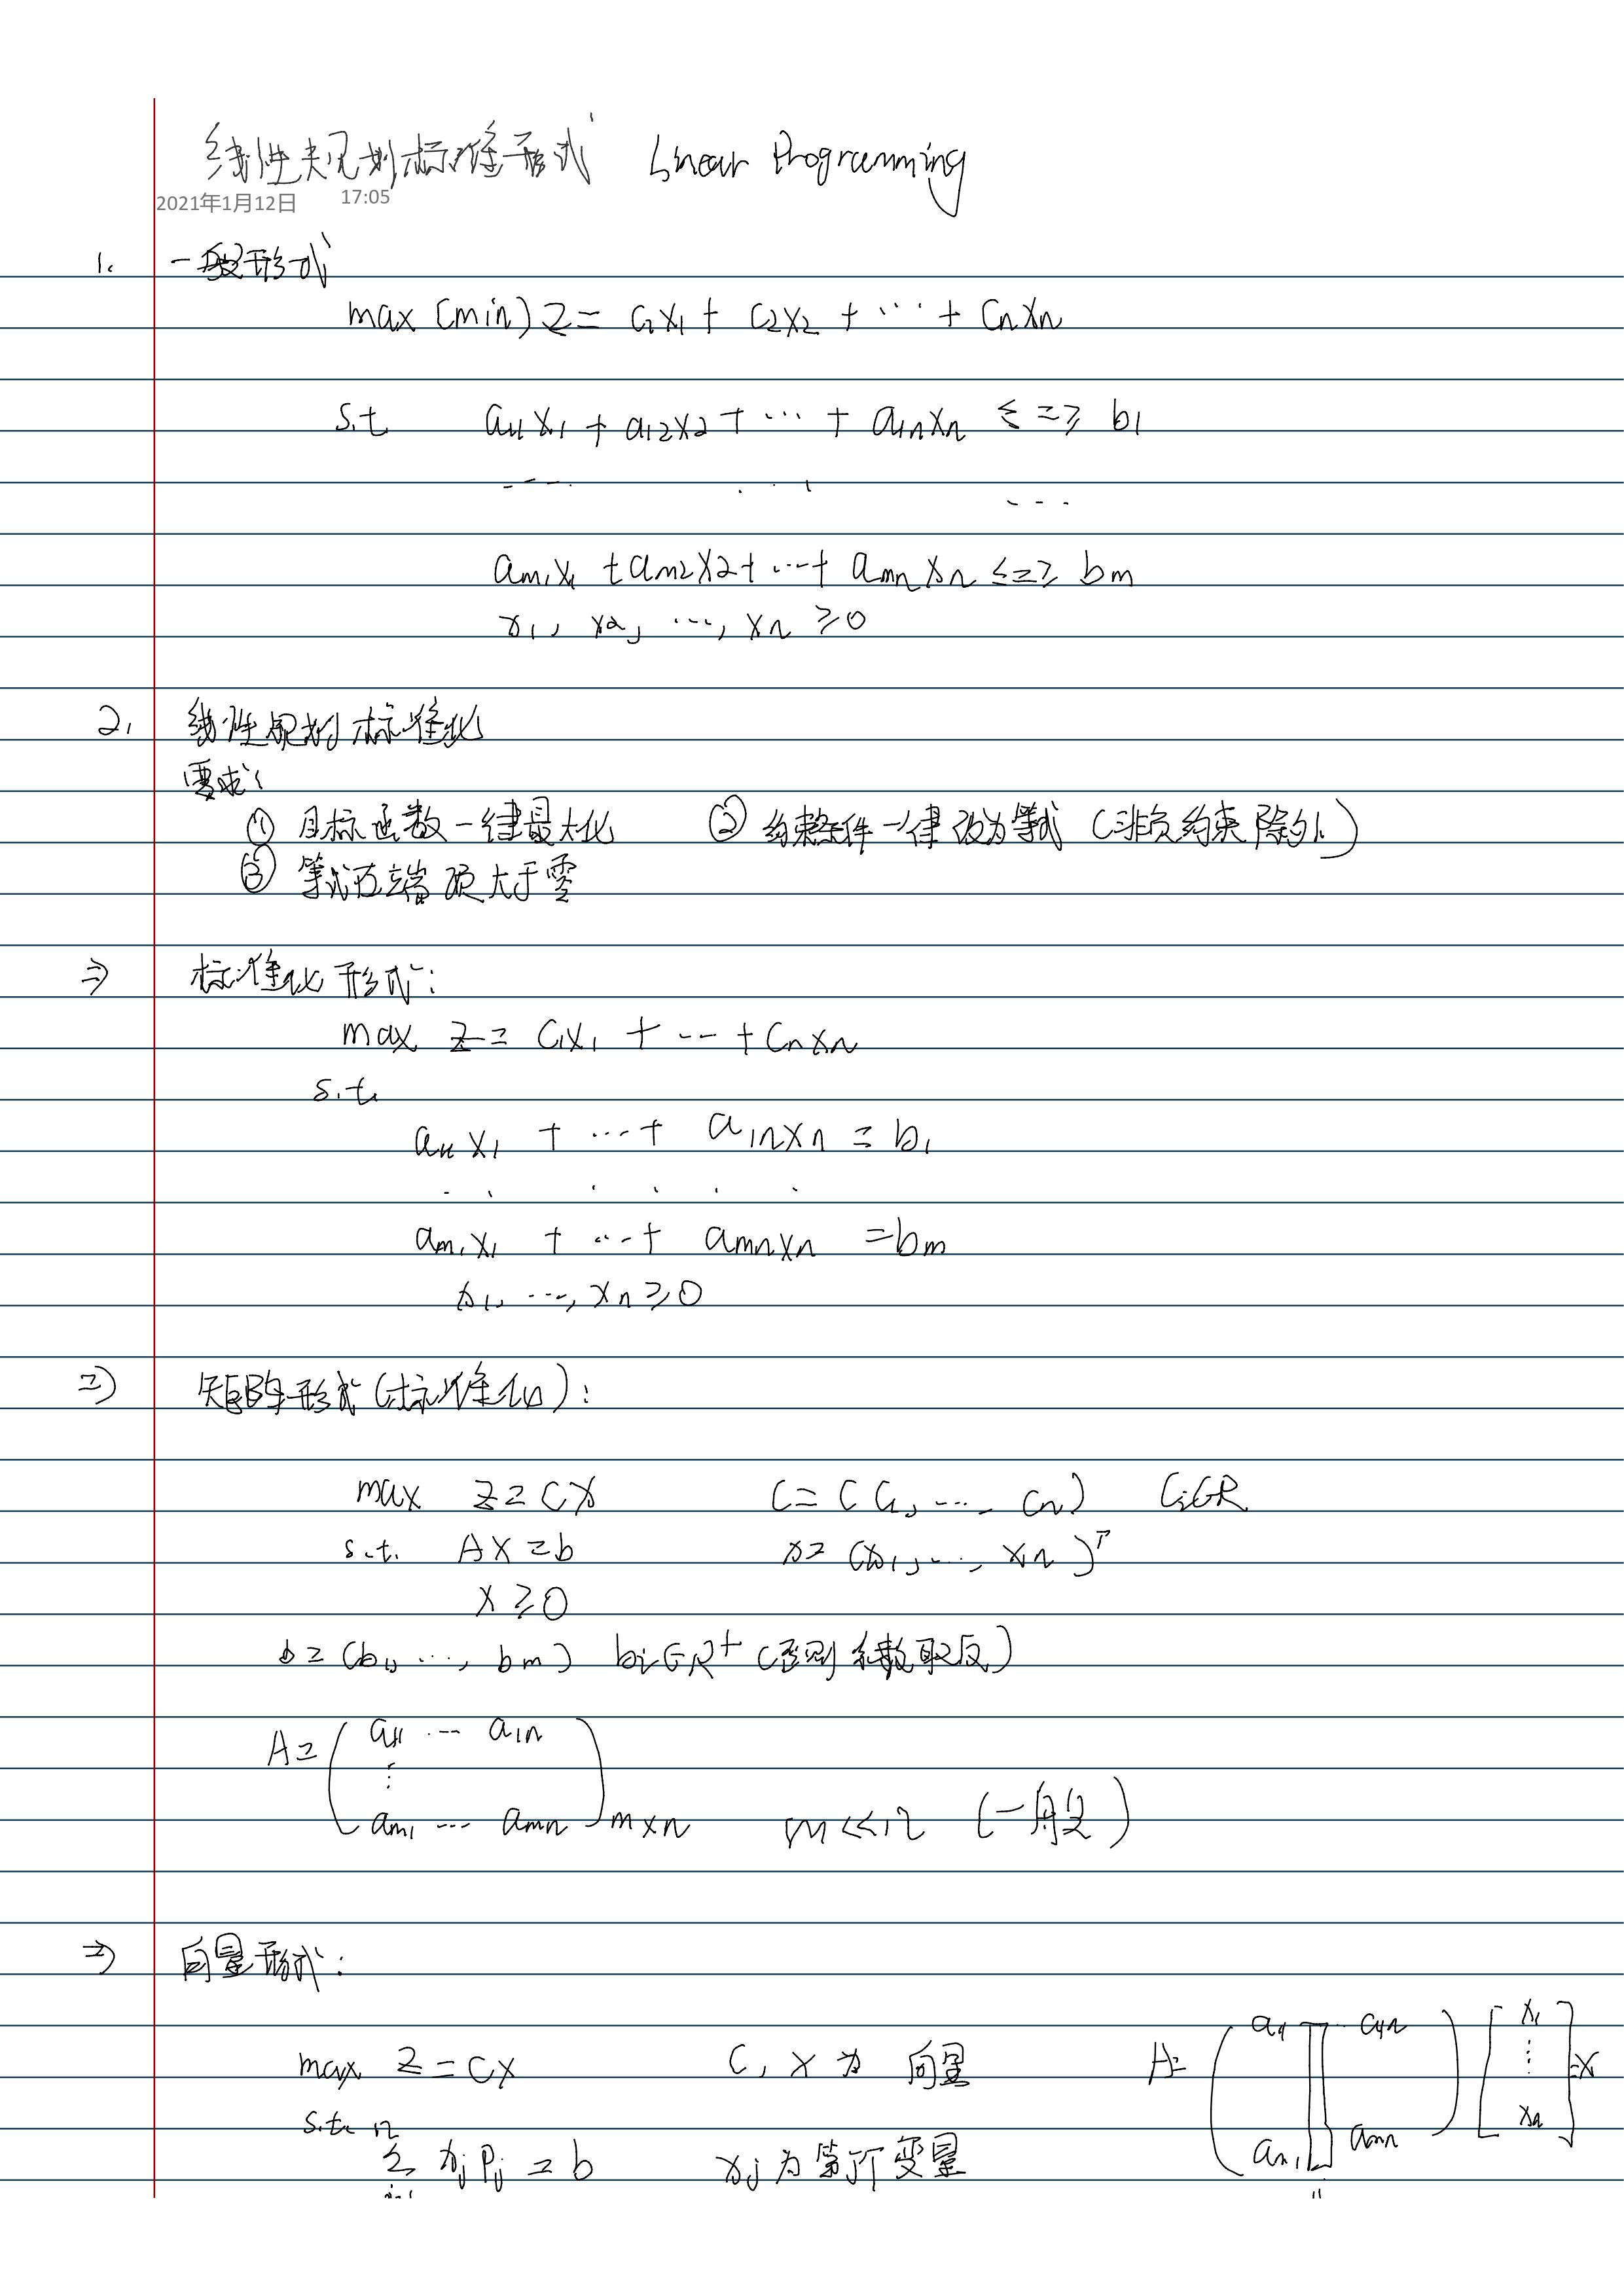 线性规划标准形式 Linear Programming
2021年1月12日 17:05
1. 一般形式
max (min) z = c₁x₁ + c₂x₂ + ⋯ + cₙxₙ
s.t. a₁₁x₁ + a₁₂x₂ + ⋯ + a₁ₙxₙ ≤ = ≥ b₁
⋯ ⋯ ⋯
aₘ₁x₁ + aₘ₂x₂ + ⋯ + aₘₙxₙ ≤ = ≥ bₘ
x₁, x₂, ⋯, xₙ ≥ 0
2. 线性规划标准化
要求:
① 目标函数一律最大化 ② 约束条件一律改为等式 (非负约束除外)
③ 等式右端项大于零
⇒ 标准化形式:
max z = c₁x₁ + ⋯ + cₙxₙ
s.t.
a₁₁x₁ + ⋯ + a₁ₙxₙ = b₁
. . . . . .
aₘ₁x₁ + ⋯ + aₘₙxₙ = bₘ
x₁, ⋯, xₙ ≥ 0
⇒ 矩阵形式(标准化):
max z = cx c = (c₁, ⋯, cₙ) cᵢ∈R
s.t. Ax = b x = (x₁, ⋯, xₙ)ᵀ
x ≥ 0
b = (b₁, ⋯, bₘ) bᵢ∈R⁺ (否则系数取反)
A = ( a₁₁ ⋯ a₁ₙ
⋮
aₘ₁ ⋯ aₘₙ ) m×n m<<n (一般)
⇒ 向量形式:
max z = cx c, x 为 向量 A = ( a₁₁ ⋯ a₁ₙ aₘ₁ aₘₙ ) [ x₁ ⋮ xₙ ] = x
s.t. n
∑ xⱼPⱼ = b xⱼ为第j个变量